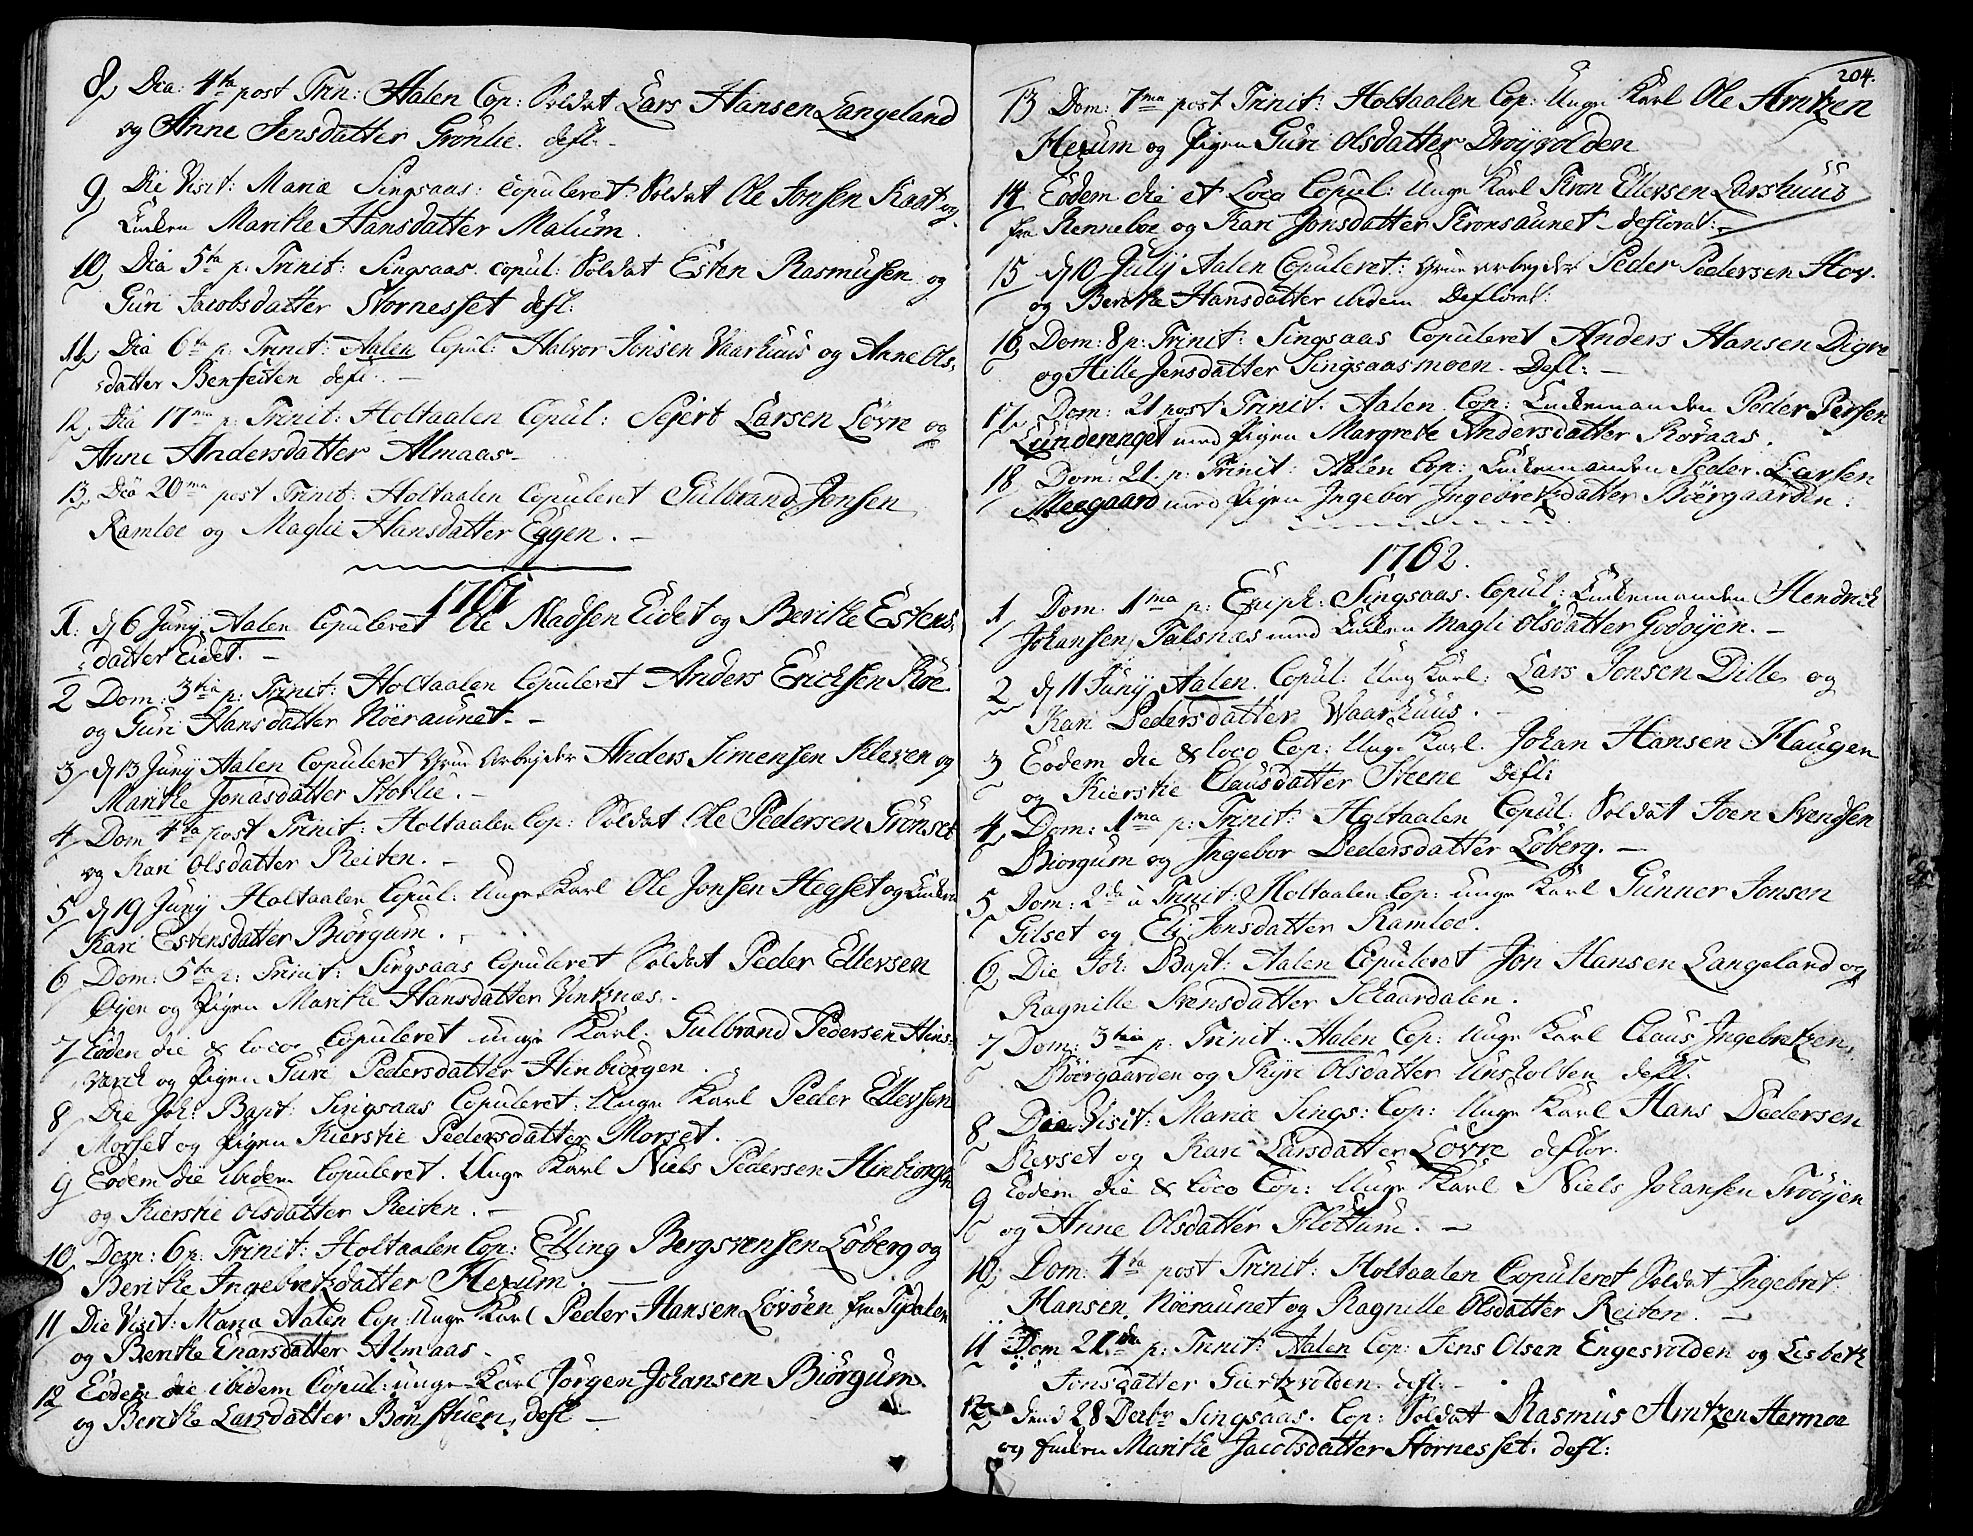 8, Dca: 4ta post Trin: Aalen Cop: Soldat Lars Hansen Langeland
og Anne Jensdatter Grønlie. defl.
9, Die Visit: Mariæ Singsaas: copuleret Soldat Ole Jonsen Kaat og
Enken Marithe Hansdatter Malum.
10, Dca 5ta p. Trinit: Singsaas copul: Soldat Esten Rasmussen og
Guri Jacobsdatter Stornesset defl:
11, Dca 6ta p: Trinit: Aalen Copul: Halvor Jonsen Vaarhuus og Anne Ols,
datter Benseiten defl.
12, Dca 17ma p: Trinit: Holtaalen Copul: Sejert Larsen Løvre og
Anne Andersdatter Almaas.
13, Dca 20ma post Trinit: Holtaalen Copuleret Gulbrand Jonsen
Ramloe og Maglie Hansdatter Eggen.
1761
1: d 6 Junÿ Aalen Copuleret Ole Madsen Eidet og Berithe Estens,
datter Eidet.
2 Dom: 3tia p: Trinit: Holtaalen Copuleret Anders Erichsen Røe
og Guri Hansdatter Nøeraunet.
3, d 13 Junÿ Aalen Copuleret Grue Arbejder Anders Simensen Kleven og
Marithe Jonasdatter Storlie.
4, Dom 4ta post Trinit: Holtaalen Cop: Soldat Ole Pedersen Grønset
og Kari Olsdatter Reiten.
5 d 19 Junÿ Holtaalen Copul: Unge Karl Ole Jonsen Hegset og Enken
Kari Estensdatter Biørgum.
6 Dom: 5ta p: Trinit: Singsaas Copuleret Soldat Peder Ellevsen
Øyen og Pigen Marithe Hansdatter Vinksnæs.
7 Eoden die & loco Copuleret unge Karl: Gulbrand Pedersen Hins:
værk og Pigen Guri Pedersdatter Hinbiørgen.
8 Die Joh: Bapt: Singsaas Copuleret: Unge Karl Peder Ellevsen
Morset og Pigen Kierstie Pedersdatter Morset.
9 Eodem die ibidem Copuleret. Unge Karl Niels Pedersen Hinbiørgen
og Kierstie Olsdatter Reiten.
10, Dom: 6 p: Trinit: Holtaalen Cop: Elling Bergsvensen Løberg og
Berithe Ingebretzdatter Hexum.
11 Die Visit: Maria Aalen Cop: Unge Karl Peder Hansen Løvøen fra Tydalen
og Berithe Enarsdatter Almaas.
12, Eodem die ibidem Copul: unge Karl Jørgen Johansen Biørgum.
og Berithe Larsdatter defl
204.
13 Dom: 7ma post Trinit: Holtaalen Cop: Unge Karl Ole Arntzen
Hexum og Pigen Guri Olsdatter Drøyvolden
14 Eodem die et Loco Copul: Unge Karl Tron Ellevsen Larshuus
fra Renneboe og Kari Jonsdatter Tronsaunet deflorat:
15 d 10 Julÿ Aalen Copuleret: Grue arbejder Peder Pedersen Hov.
og Berithe Hansdatter ibidem Deflorat:
16, Dom: 8 p: Trinit: Singsaas Copuleret Anders Hansen Digre
og Hille Jensdatter Singsaasmoen. Defl:
17, Dom: 21 post Trinit. Aalen Cop: Enkemanden Peder Persen
Lunderenget med Pigen Margrete Andersdatter Røraas.
18 Dom: 21. p: Trinit: Aalen Cop: Enkemanden Peder Larsen
Moegaard med Pigen Ingebor Ingebretzdatter Bøergaarden.
1762.
1, Dom: 1ma p: Epiph: Singsaas. Copul: Enkemanden Hendrich
Johansen Talsnæs med Enken Magli Olsdatter Godøyen.
2 d 11 Junÿ Aalen. Copul: Ung Karl: Lars Jonsen Dille og
Kari Pedersdatter Waarhuus.
3 Eodem die & loco Cop: Unge Karl. Johan Hansen Haugen
og Kierstie Clausdatter Steene defl:
4, Dom: 1ma p: Trinit: Holtaalen Copul: Soldat Joen Svendsen
Biørgum og Ingebor Pedersdatter Løberg.
5 Dom: 2da a Trinit: Holtaalen Cop: unge Karl Gunner Jonsen
Gilset og Eli Jonsdatter Ramloe.
6, Die Joh: Bapt: Aalen Copuleret Jon Hansen Langeland og
Ragnille Svensdatter Schaardalen.
7 Dom: 3tia p: Trinit. Aalen Cop: Unge Karl Claus Ingebretzen
Bøergaarden og Thyri Olsdatter Unsholten defl:
8 Die Visit: Mariæ Sings: Cop: Unge Karl Hans Pedersen
Refset og Kari Larsdatter Løvre deflor.
9 Eodem die & loco Cop: Unge Karl Niels Johansen Trøøyen
og Anne Olsdatter Flottum.
10, Dom: 4ta post Trinit: Holtaalen Copuleret Soldat Ingebret
Hansen Nøeraunet og Ragnille Olsdatter Reiten.
11 Dom 21 p: Trinit: Aalen Cop: Jens Olsen Engesvolden og Lisbeth
Jonsdatter Giertzvolden. defl:
12, 28 Decbr Singsaas. Cop: Soldat Rasmus Arntzen Hermoe
og Enken Marithe Jacobsdatter Stornesset. defl: